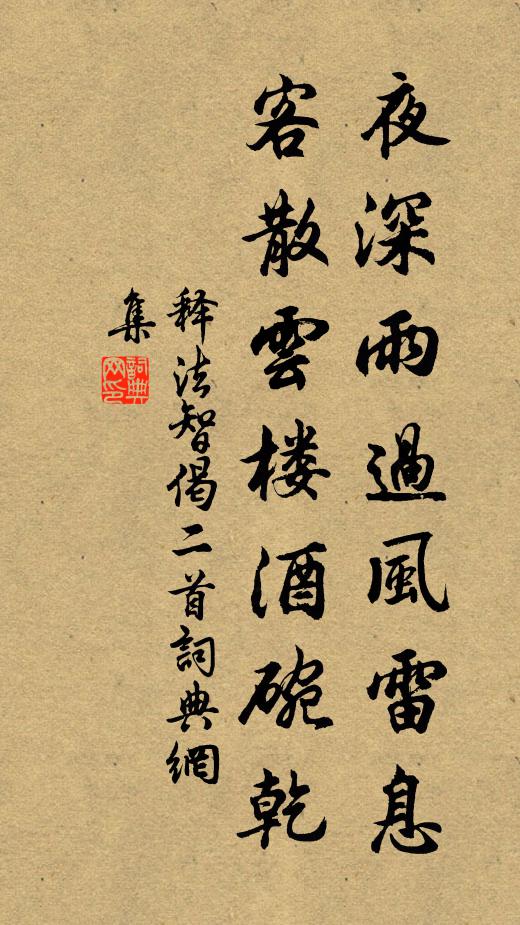 夜深雨過風雷息
客散雲楼酒碗乾
釋法智偈二首詞典網
集
詞典
网印